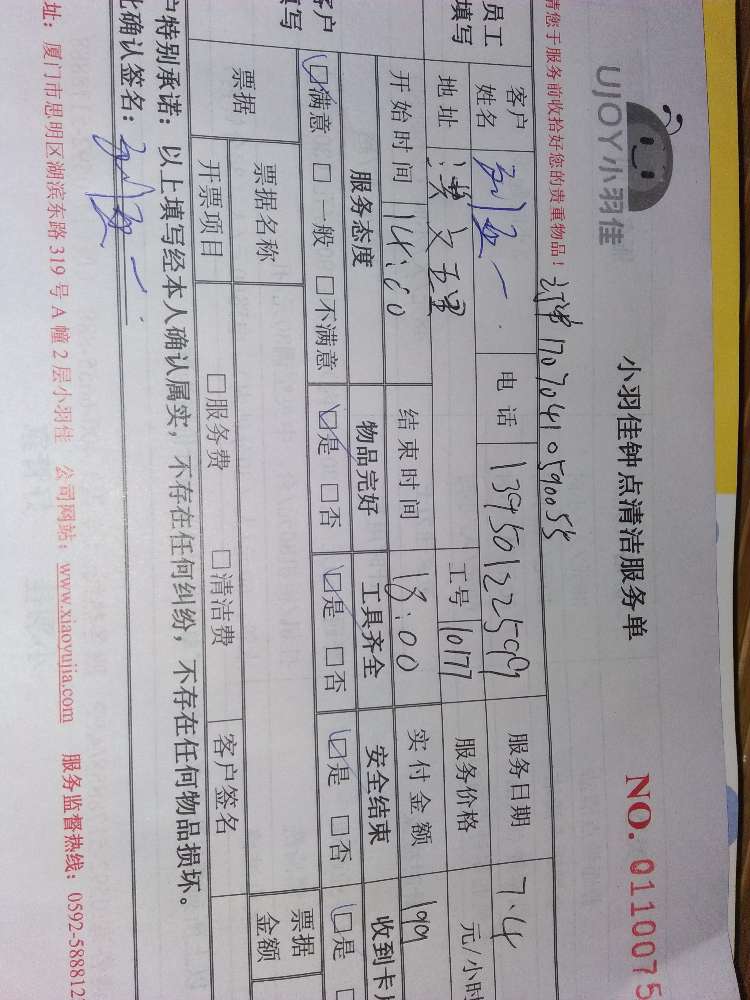 UJOY小羽佳
小羽佳钟点清洁服务单
NO. 0110075
请您于服务前收拾好您的贵重物品！
17070410590055
员工
填写
客户
姓名
电话 13950122599
服务日期 7.4
地址
工号 10177
服务价格 元/小时
开始时间 14:00
结束时间 18:00
实付金额 199
客户
填写
服务态度 物品完好 工具齐全 安全结束 收到卡片
满意 □ 一般 □ 不满意 是 □ 否 是 □ 否 是 □ 否 是
票据
票据名称
票据
金额
开票项目 □服务费 □清洁费 客户签名
户特别承诺：以上填写经本人确认属实，不存在任何纠纷，不存在任何物品损坏。
此确认签名：
址：厦门市思明区湖滨东路319号A幢2层小羽佳 公司网站：www.xiaoyujia.com 服务监督热线：0592-588812